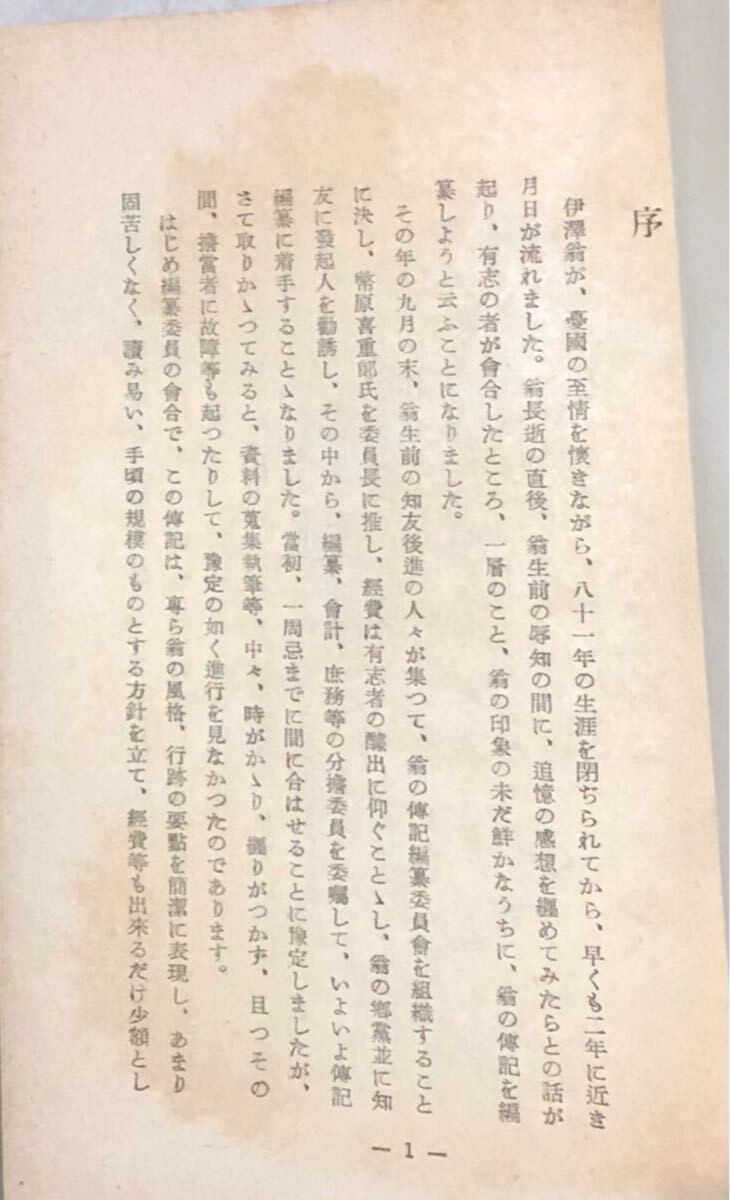 序
伊澤翁が、憂國の至情を懷きながら、八十一年の生涯を閉ぢられてから、早くも二年に近き
月日が流れました。翁長逝の直後、翁生前の辱知の間に、追憶の感想を纒めてみたらとの話が
起り、有志の者が會合したところ、一層のこと、翁の印象の未だ鮮かなうちに、翁の傳記を編
纂しようと云ふことになりました。
その年の九月の末、翁生前の知友後進の人々が集つて、翁の傳記編纂委員會を組織すること
に決し、幣原喜重郎氏を委員長に推し、經費は有志者の醵出に仰ぐことゝし、翁の鄕黨並に知
友に發起人を勸誘し、その中から、編纂、會計、庶務等の分擔委員を委囑して、いよいよ傳記
編纂に着手することゝなりました。當初、一周忌までに間に合はせることに豫定しましたが、
さて取りかゝつてみると、資料の蒐集執筆等、中々、時がかゝり、纒りがつかず、且つその
間、擔當者に故障等も起つたりして、豫定の如く進行を見なかつたのであります。
はじめ編纂委員の會合で、この傳記は、專ら翁の風格、行跡の要點を簡潔に表現し、あまり
固苦しくなく、讀み易い、手頃の規模のものとする方針を立て、經費等も出來るだけ少額とし
— 1 —